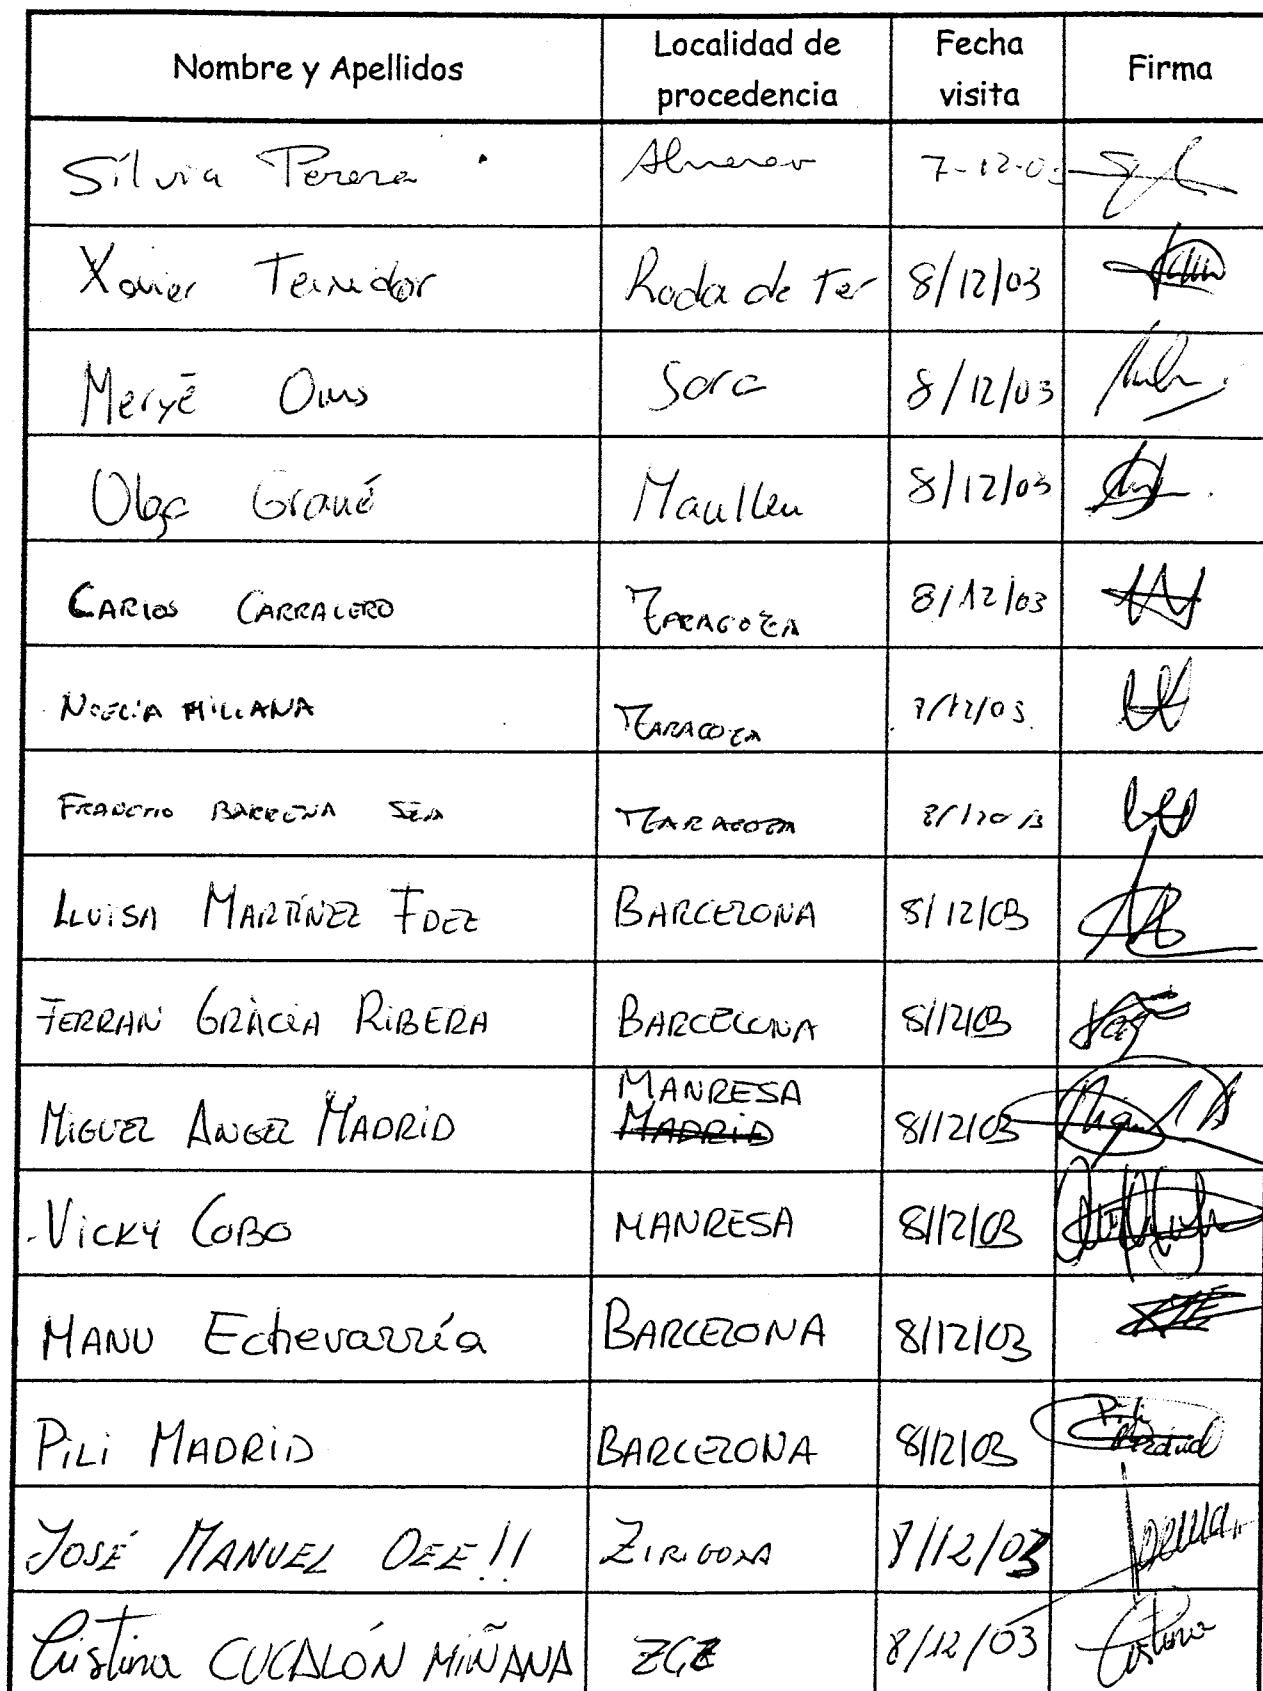 Nombre y Apellidos
Localidad de procedencia
Fecha visita
Firma
Sílvia Perera 7-12-03
Xavier Teixidor Roda de Ter 8/12/03
Meryè Oms Sora 8/12/03
Olga Grané Manlleu 8/12/03
CARLOS CARRALERO ZARAGOZA 8/12/03
NOELIA MILLANA ZARAGOZA
BARRENA ZARAGOZA
LLUISA MARTÍNEZ FDEZ BARCELONA 8/12/03
FERRAN GRÀCIA RIBERA BARCELONA 8/12/03
MANRESA
MIGUEL ANGEL MADRID MADRID 8/12/03
VICKY COBO MANRESA 8/12/03
MANU Echevarría BARCELONA 8/12/03
PILI MADRID BARCELONA 8/12/03 Pili Madrid
JOSÉ MANUEL OEE!! 8/12/03
Cristina CUCALÓN MIÑANA ZGZ 8/12/03 Cristina